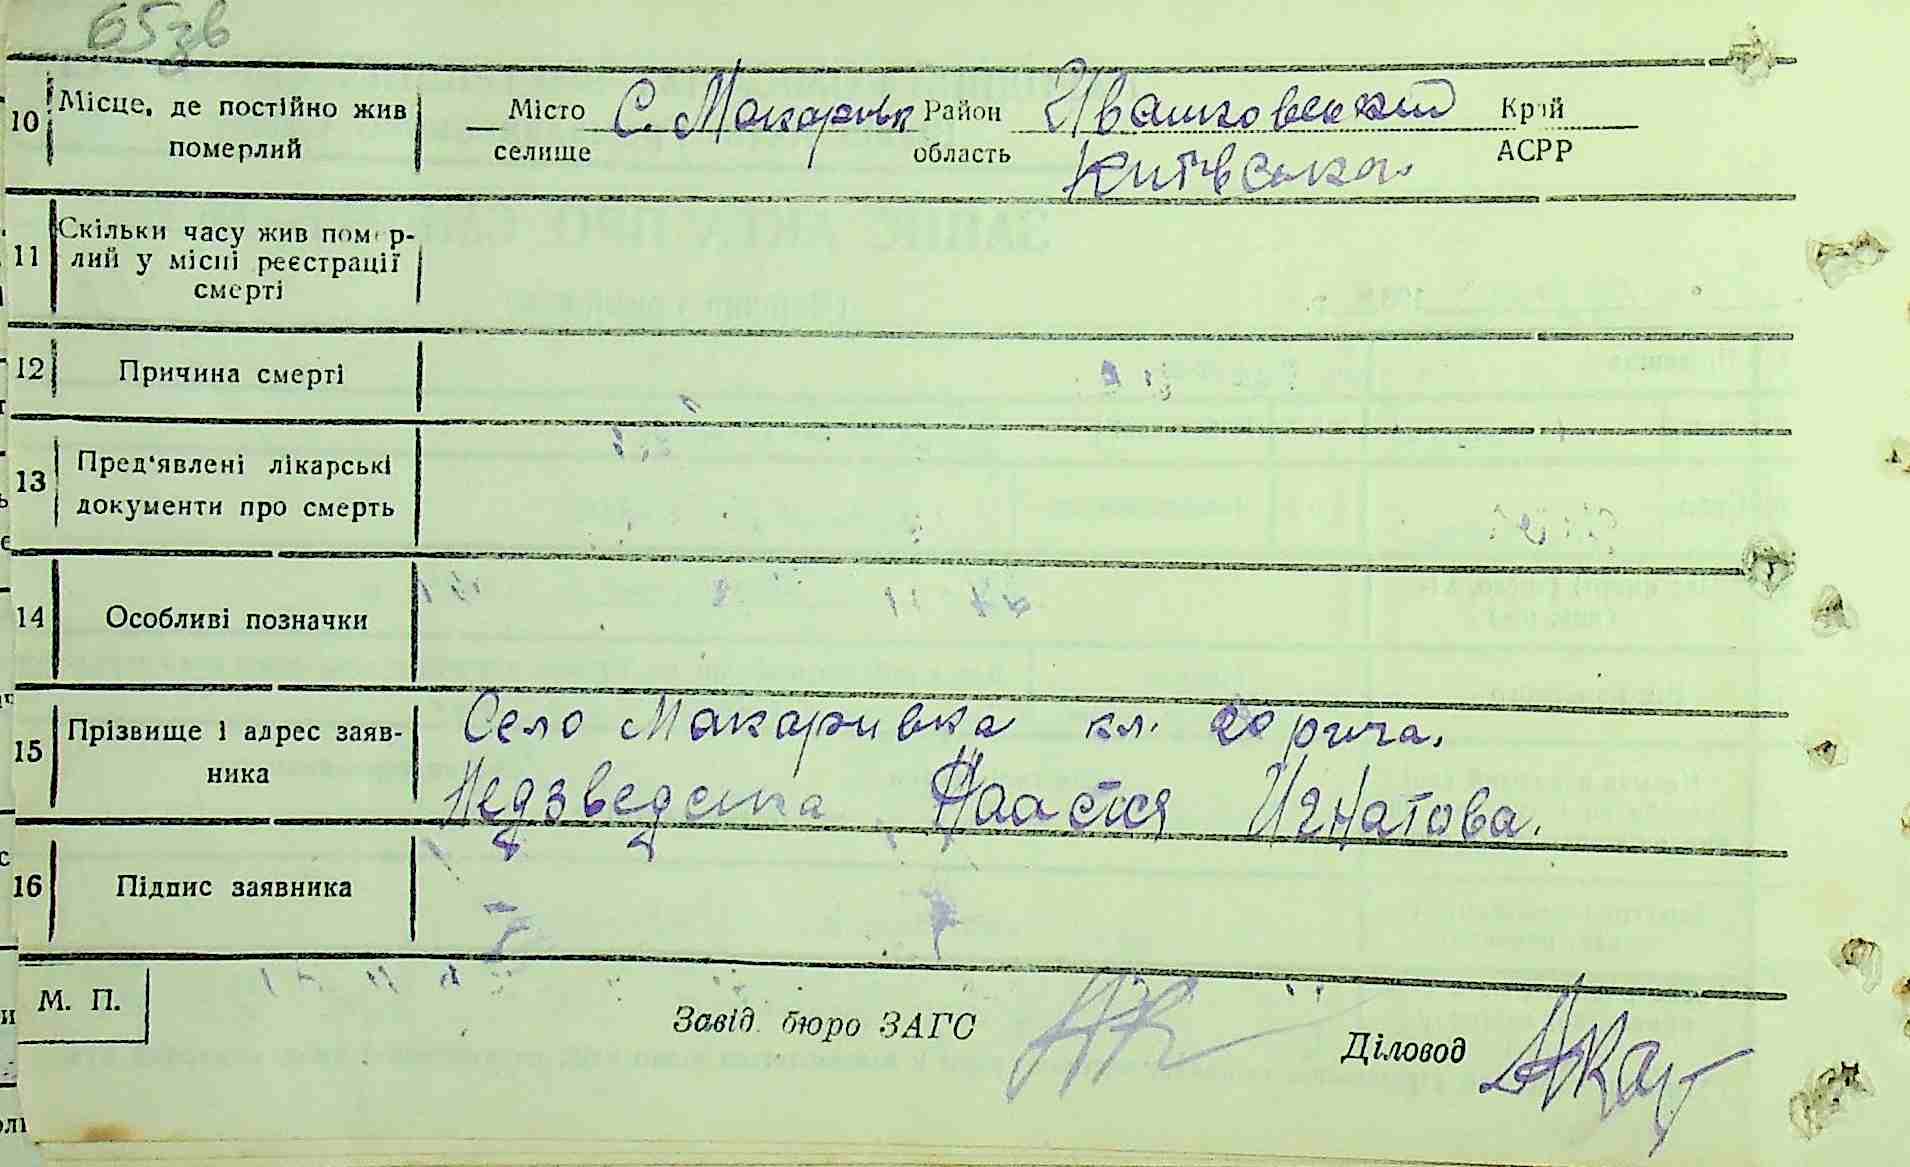 65зв
10 Місце, де постійно жив померлий
Місто селище С. Макарівк Район область Ивашковский Київська Край АСРР
11 Скільки часу жив помер-
лий у місці реєстрації
смерті
12 Причина смерті
13 Пред'явлені лікарські
документи про смерть
14 Особливі позначки
15 Прізвище і адрес заяв-
ника
Село Макаривка кл.
Недзведська Наастя Игнатова.
16 Підпис заявника
М. П.
Завід. бюро ЗАГС
Діловод